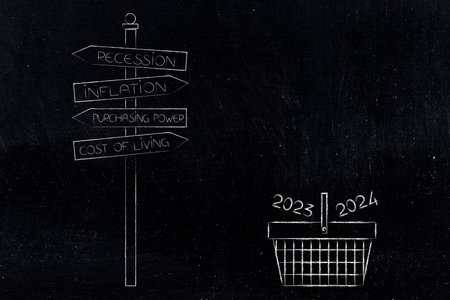 RECESSION
INFLATION
PURCHASING POWER
COST OF LIVING
2023 2024